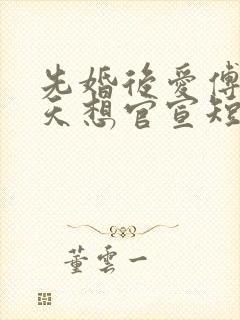 先婚後愛傅
天想官宣短
董雲一